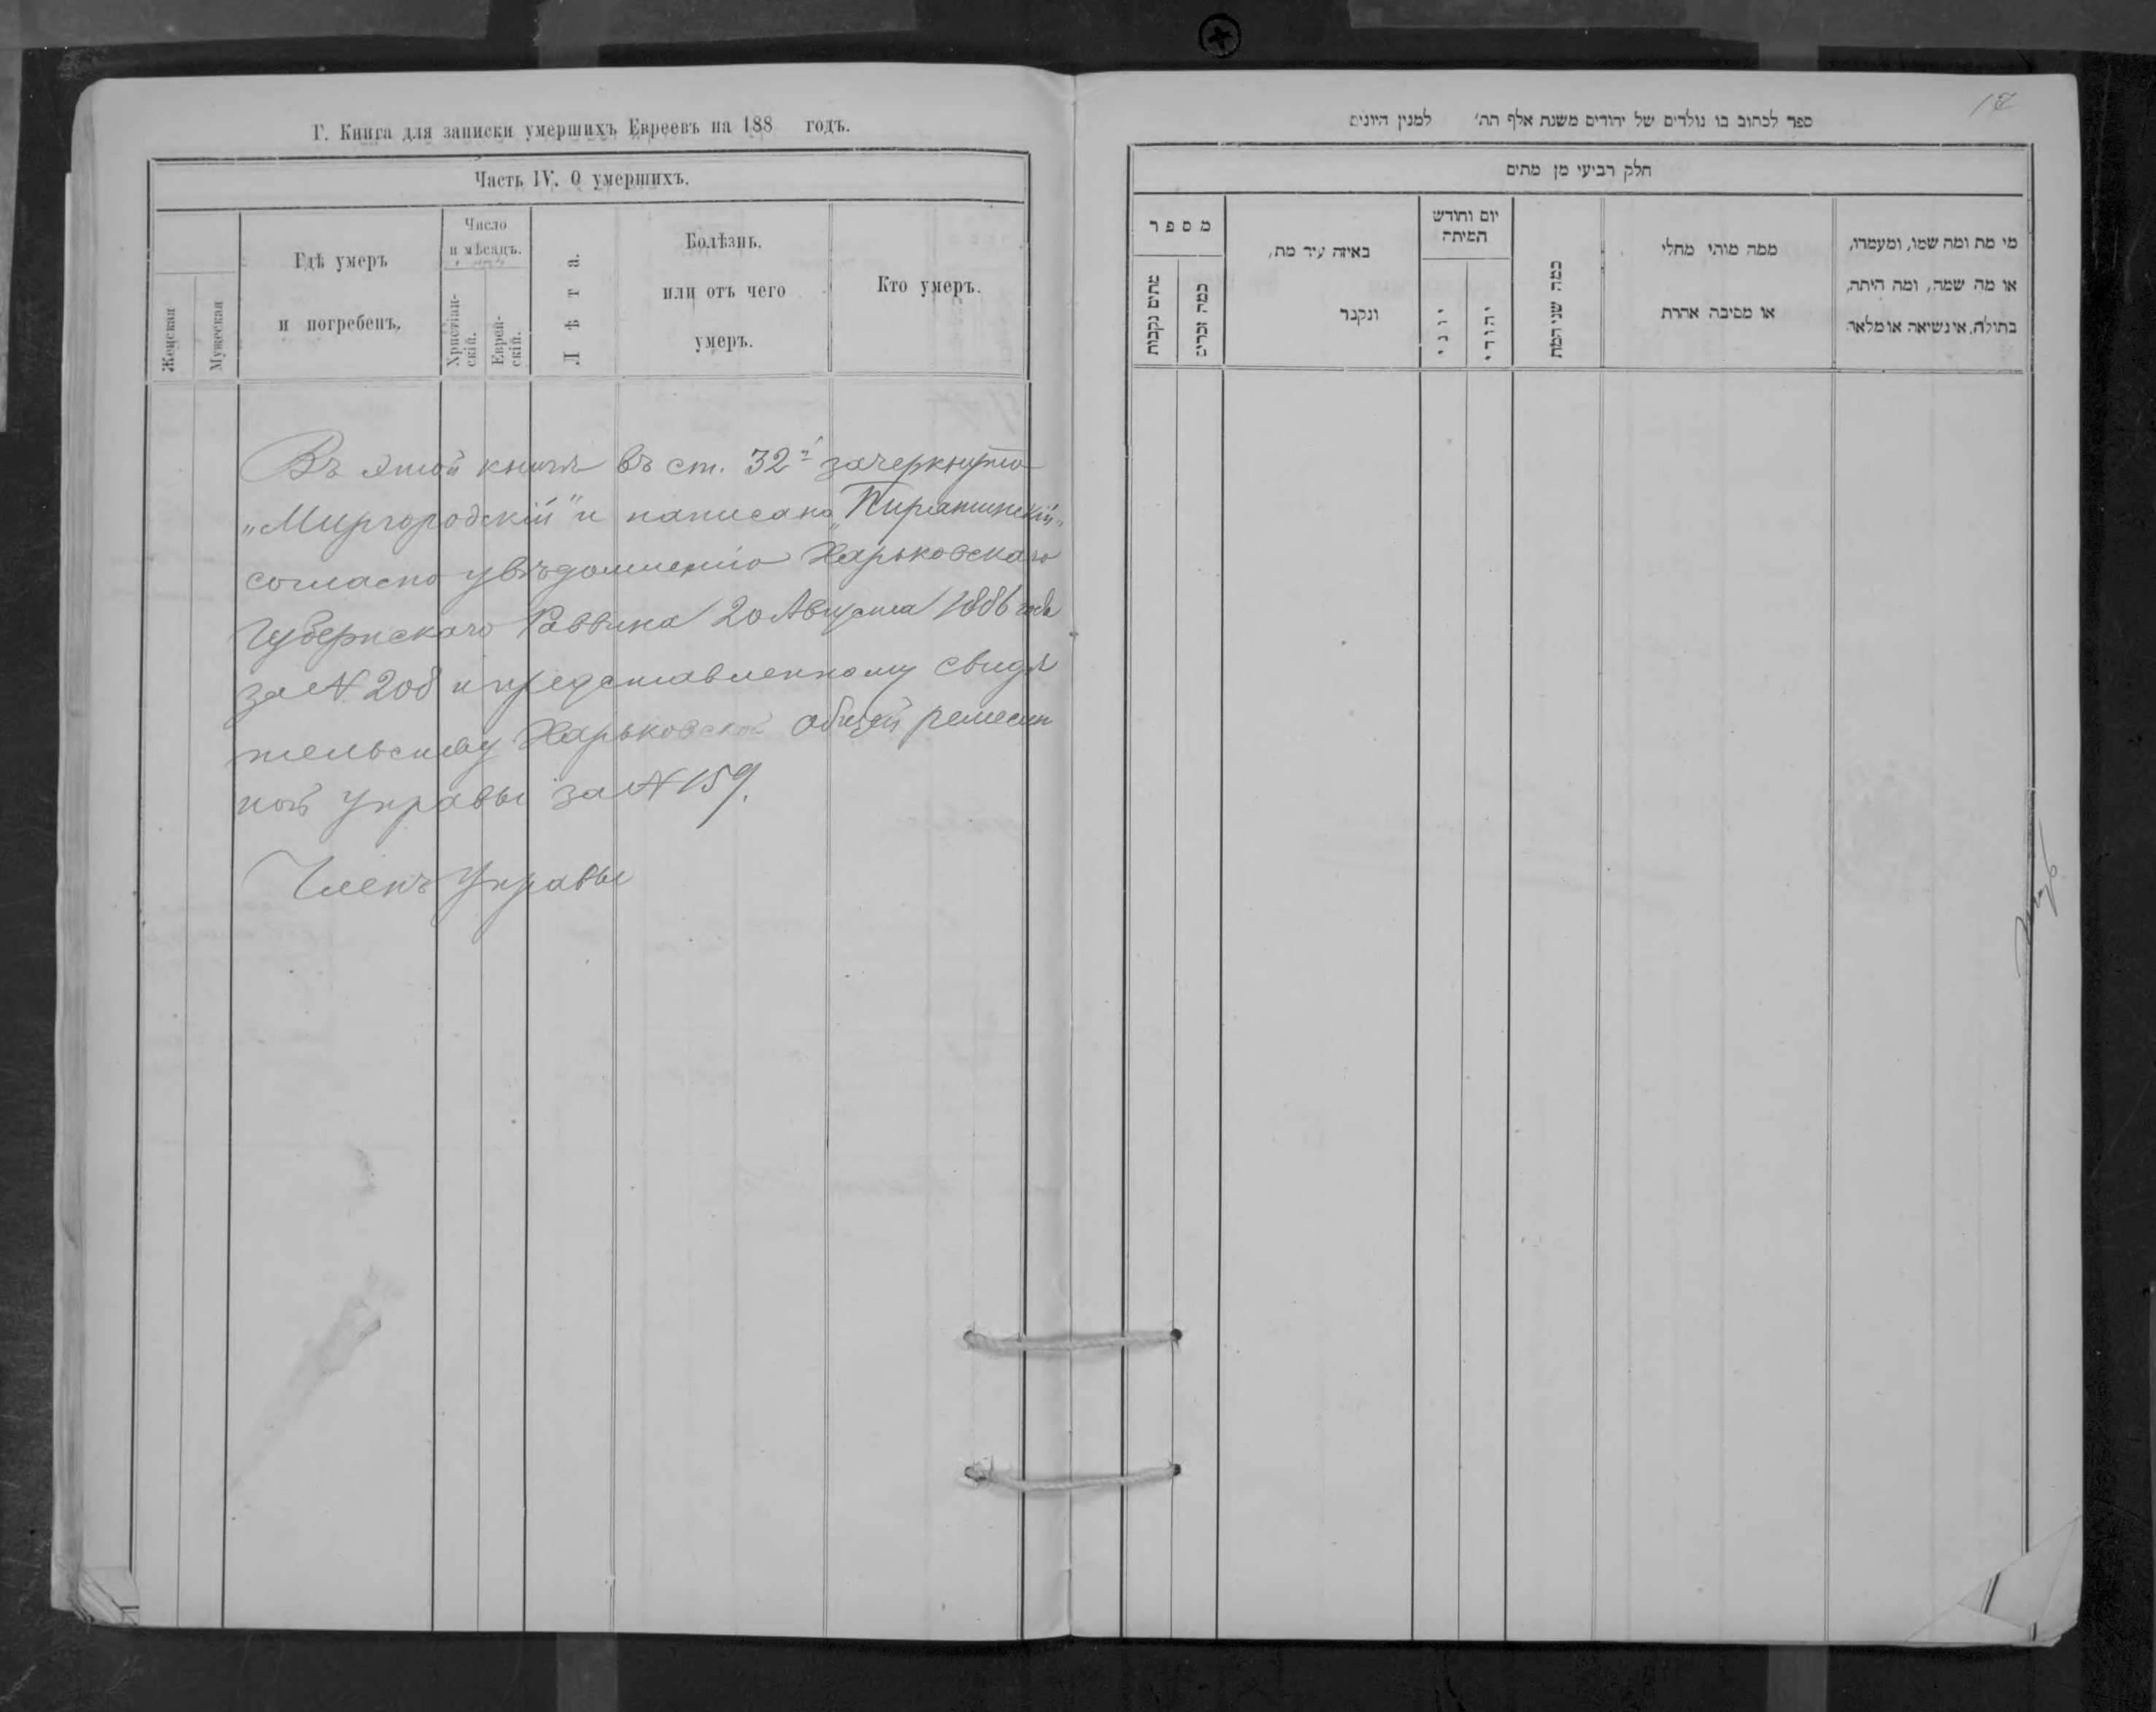 Г. Книга для записки умершихъ Евреевъ на 188 годъ.
Часть IV. О умершихъ.
Женская
Мужеская
Гдѣ умеръ
и погребенъ.
Число
и мѣсяцъ.
Христіан-
скій.
Еврей-
скій.
Лѣта.
Болѣзнь.
или отъ чего
умеръ.
Кто умеръ.
Въ этой книгѣ въ ст. 32й зачеркнуто
„Миргородскій" и написано „Пирятинскій„
согласно увѣдомленію Харьковскаго
Губернскаго Раввина 20 Августа 1886 года
за № 208 и представленному свидѣ
тельству Харьковской общей ремеслен
ной управы за № 159.
Членъ Управы
ספר לכתוב בו נולדים של יהודים משנת אלף תת׳ למנין היונים
חלק רביעי מן מתים
מספר
מתים נקבות
כמה זכרים
באיזה עיר מת,
ונקבר
יום וחודש
המיתה
יוני
יהודי
כמה שני המת
ממה מותי מחלי
או מסיבה אהרת
מי מת ומה שמו, ומעמדו,
או מה שמה, ומה היתה,
בתולה, או נשיאה או מלאר